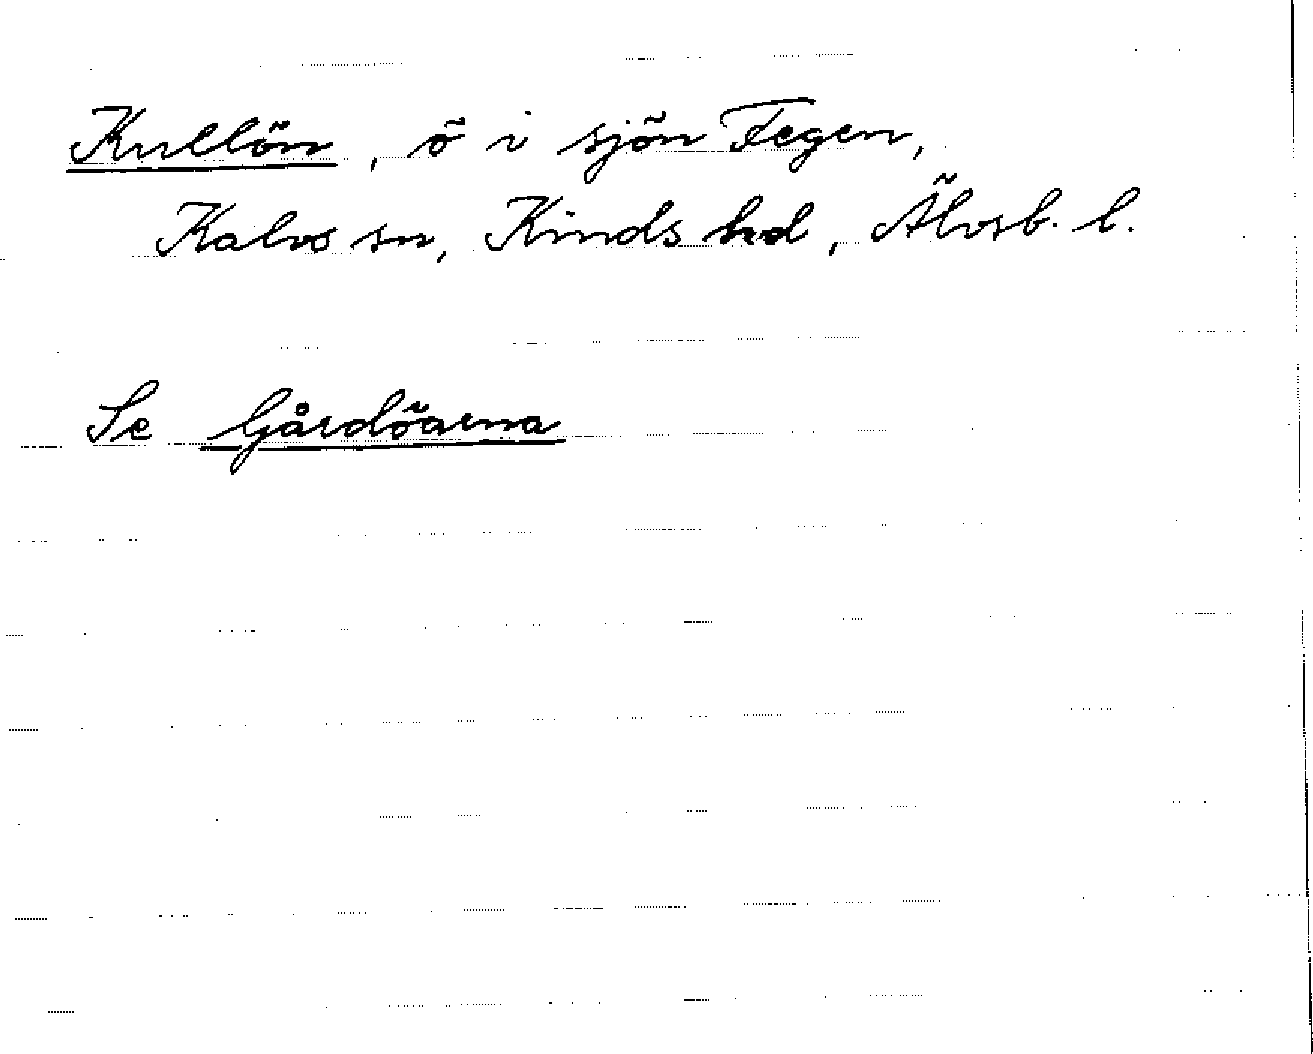 Kullön, ö i sjön Fegen,
Kalvs sn, Kinds hd, Älvsb. l.
Se Gårdöarna